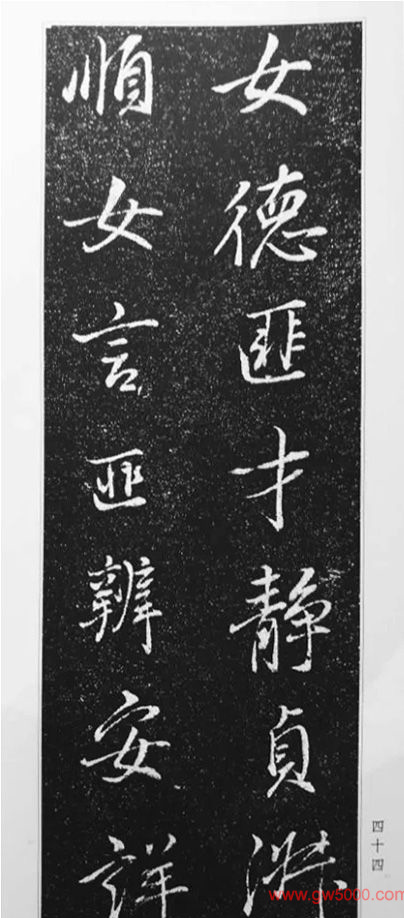 女德匪才静貞淑
順女言匪辨安詳
四十四
www.gw5000.com